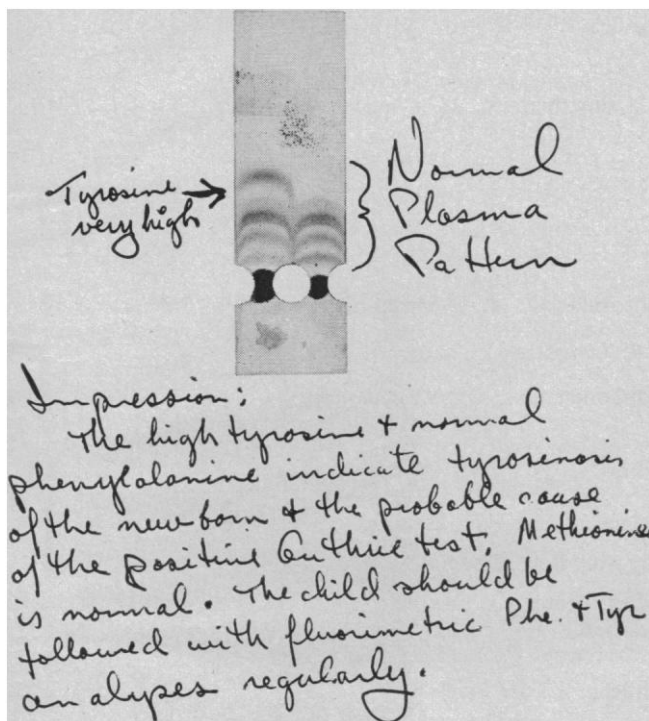 Tyrosine
very high
Normal
Plasma
Pattern
Impression:
The high tyrosine + normal
phenylalanine indicate tyrosinosis
of the newborn & the probable cause
of the positive Guthrie test. Methionine
is normal. The child should be
followed with fluorimetric Phe. + Tyr
analyses regularly.